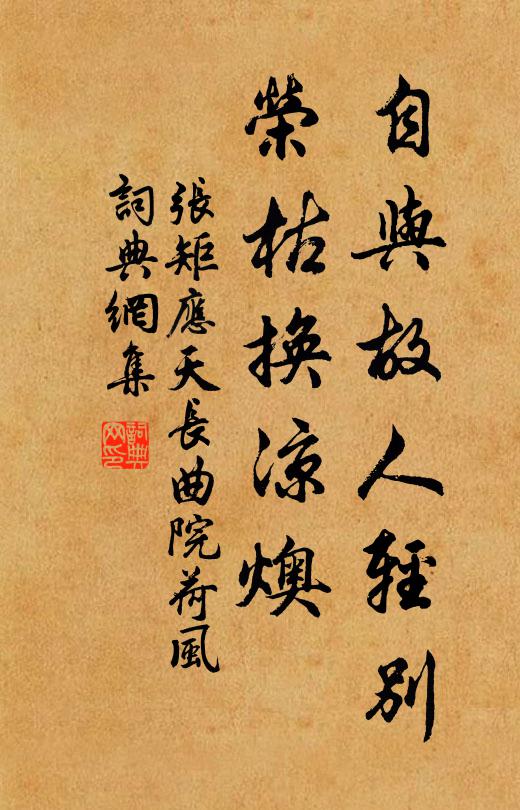 自與故人輕別
榮枯換涼燠
張矩應天長曲院荷風
詞典網集
詞典网印